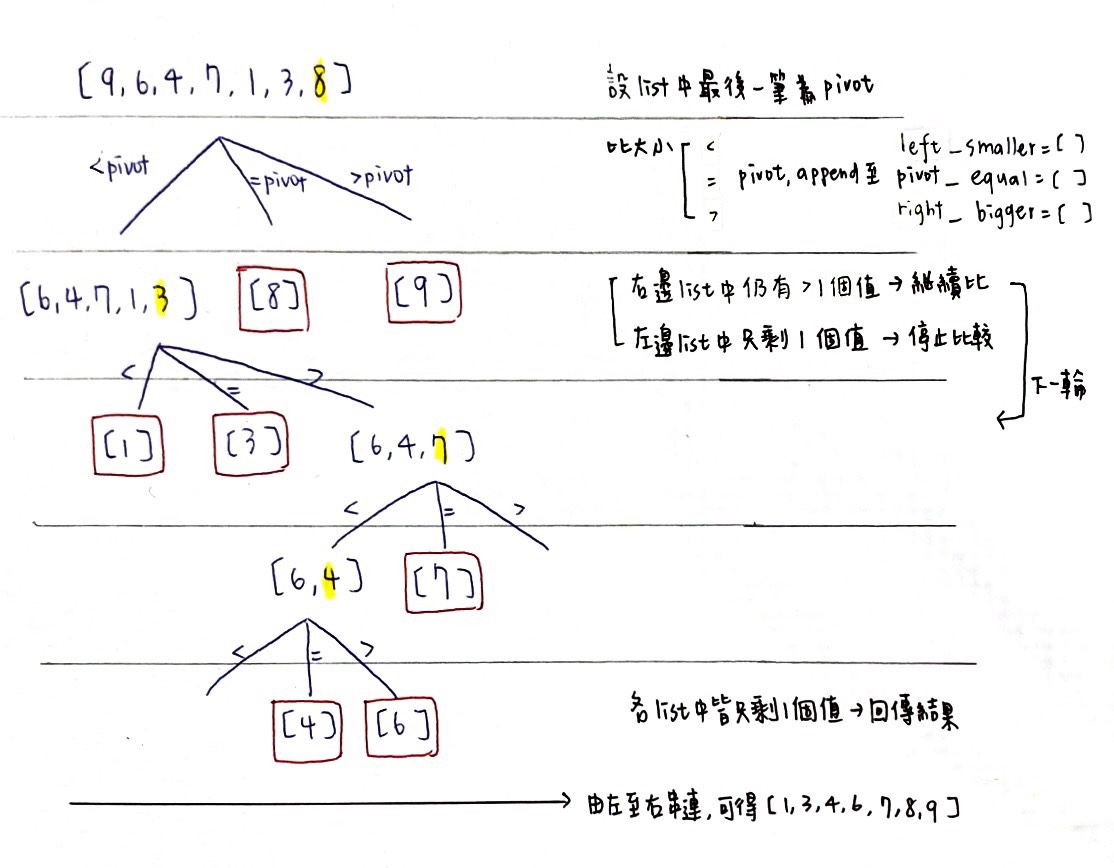 [9,6,4,7,1,3,8] 設list中最後一筆為pivot
<pivot =pivot >pivot
比大小 < = > pivot, append至
left_smaller=[ ]
pivot_equal=[ ]
right_bigger=[ ]
[6,4,7,1,3] [8] [9]
右邊list中仍有>1個值→繼續比
左邊list中只剩1個值→停止比較
下一輪
< = >
[1] [3] [6,4,7]
< = >
[6,4] [7]
< = >
[4] [6]
各list中皆只剩1個值→回傳結果
由左至右串連,可得[1,3,4,6,7,8,9]